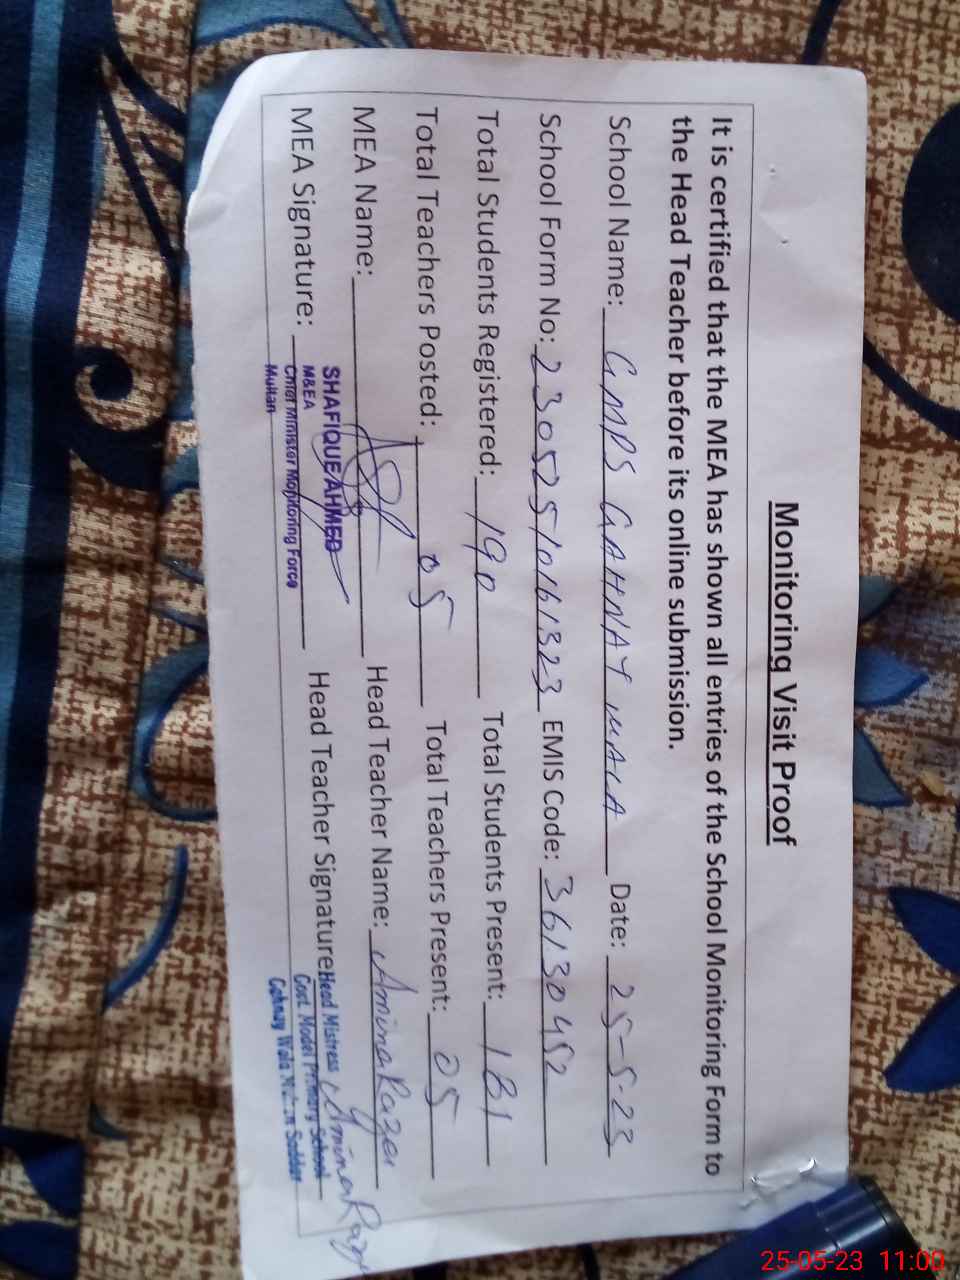 Monitoring Visit Proof
It is certified that the MEA has shown all entries of the School Monitoring Form to
the Head Teacher before its online submission.
School Name: GMPS GAHNAY WALA Date: 25-5-23
School Form No: 23052510161323 EMIS Code: 36130452
Total Students Registered: 190 Total Students Present: 181
Total Teachers Posted: 05 Total Teachers Present: 05
MEA Name: Head Teacher Name: Amina
MEA Signature: Head Teacher Signature: Amina
SHAFIQUE AHMED
M&EA
Chief Minister Monitoring Force
Multan
Head Mistress
Govt. Model Primary School
Gehnay Wala Multan Sadder
25-05-23 11:00